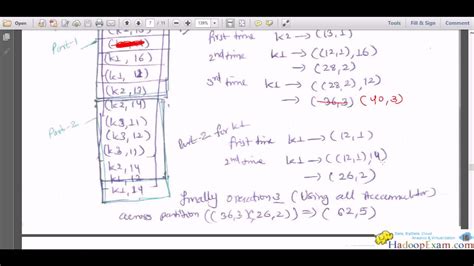 7 / 11
139%
Tools
Sign
Comment
(k2, 13)
Part-1
(k1, 16)
(k1, 12)
(k2, 13)
Part-2
(k2, 14)
(k3, 11)
(k3, 12)
(k3, 13)
k1, 14
k1, 12
k1, 14
first time k2 → (13, 1)
2nd time k1 → ((12,1), 16)
→ (28, 2)
3rd time k1 → ((28,2), 12)
→ (36,3) (40, 3)
Part-2 for k1
first time k1 → (12, 1)
2nd time k1 → ((12,1), 14)
→ (26, 2)
finally operation 3 (Using all Accumulator)
across partition ((36,3) (26,2)) => (62, 5)
HadoopExam.com